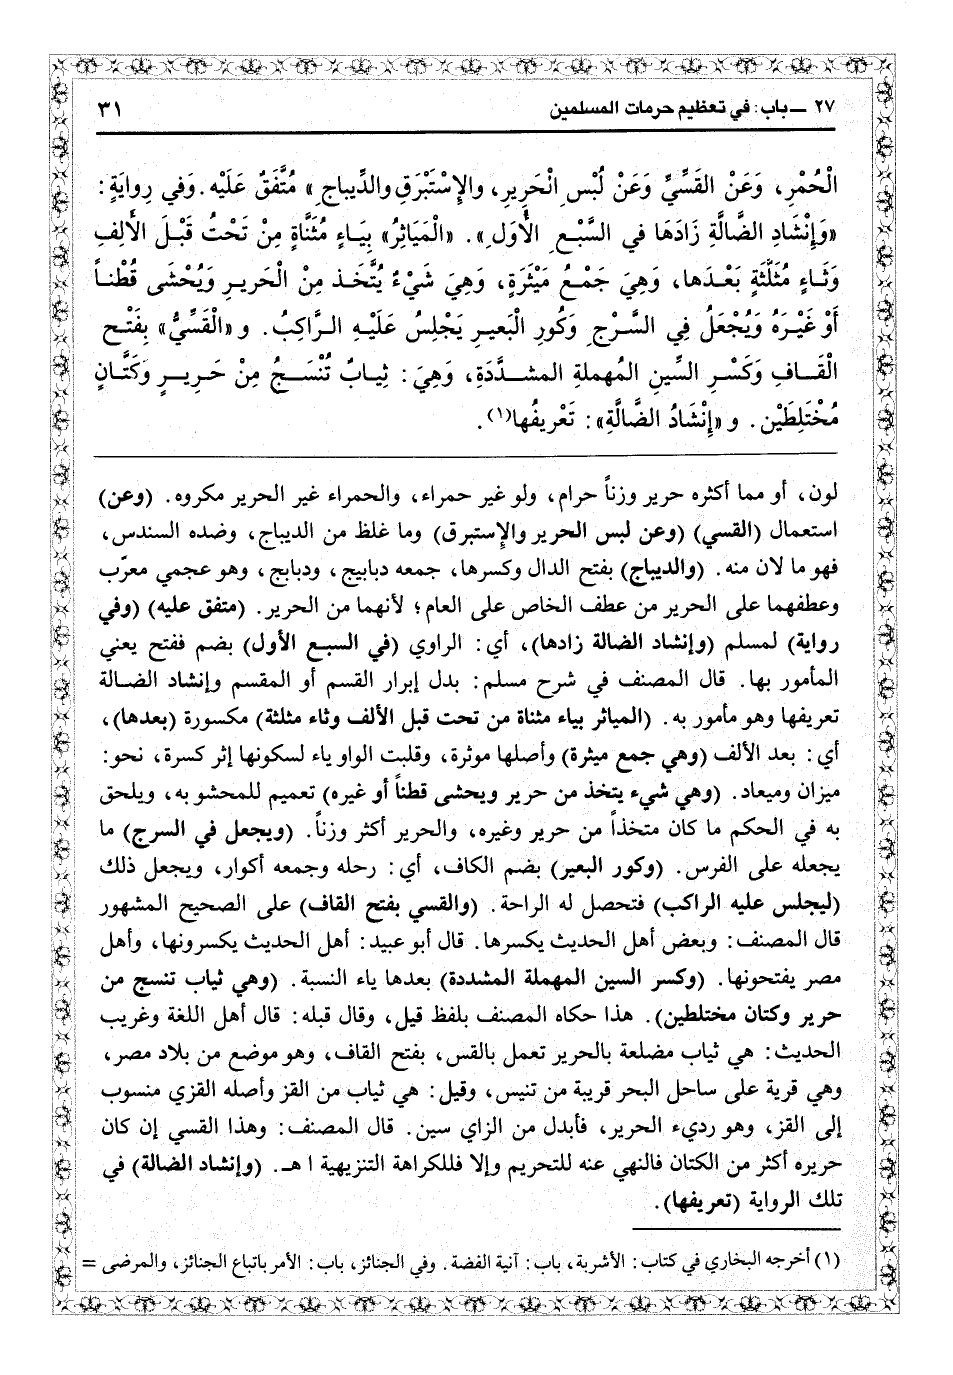 ٢٧ ــ باب: في تعظيم حرمات المسلمين
٣١
الْحُمْرِ، وَعَنْ القَسِّيِّ وَعَنْ لُبْسِ الْحَرِيرِ، والإِسْتَبْرَقِ والدِّيباجِ» مُتَّفَقٌ عَلَيْهِ. وَفي رِوايَةٍ:
«وَإِنْشَادِ الضَّالَّةِ زَادَهَا في السَّبْعِ الأَوَلِ». «الْمَيَاثِرُ» بِيَاءٍ مُثَنَّاةٍ مِنْ تَحْتُ قَبْلَ الأَلِفِ
وَثَاءٍ مُثَلَّثَةٍ بَعْدَها، وَهِيَ جَمْعُ مَيْثَرَةٍ، وَهِيَ شَيْءٌ يُتَّخَذ مِنْ الْحَريرِ وَيُحْشى قُطْناً
أَوْ غَيْرَهُ وَيُجْعَلُ فِي السَّرْجِ وَكُورِ الْبَعيرِ يَجْلِسُ عَلَيْهِ الرَّاكِبُ. و «الْقَسِّيُّ» بِفَتْحِ
الْقَافِ وَكَسْرِ السِّينِ المُهملةِ المشدَّدَةِ، وَهِيَ: ثِيابٌ تُنْسَجُ مِنْ حَريرٍ وَكَتَّانٍ
مُخْتَلِطَيْن. و «إِنْشَادُ الضَّالَّةِ»: تَعْرِيفُها(١).
لون، أو مما أكثره حرير وزناً حرام، ولو غير حمراء، والحمراء غير الحرير مكروه. (وعن)
استعمال (القسي) (وعن لبس الحرير والإستبرق) وما غلظ من الديباج، وضده السندس،
فهو ما لان منه. (والديباج) بفتح الدال وكسرها، جمعه دبابيج، ودبابج، وهو عجمي معرّب
وعطفهما على الحرير من عطف الخاص على العام؛ لأنهما من الحرير. (متفق عليه) (وفي
رواية) لمسلم (وإنشاد الضالة زادها)، أي: الراوي (في السبع الأول) بضم ففتح يعني
المأمور بها. قال المصنف في شرح مسلم: بدل إبرار القسم أو المقسم وإنشاد الضالة
تعريفها وهو مأمور به. (المياثر بياء مثناة من تحت قبل الألف وثاء مثلثة) مكسورة (بعدها)،
أي: بعد الألف (وهي جمع ميثرة) وأصلها موثرة، وقلبت الواو ياء لسكونها إثر كسرة، نحو:
ميزان وميعاد. (وهي شيء يتخذ من حرير ويحشى قطناً أو غيره) تعميم للمحشو به، ويلحق
به في الحكم ما كان متخذاً من حرير وغيره، والحرير أكثر وزناً. (ويجعل في السرج) ما
يجعله على الفرس. (وكور البعير) بضم الكاف، أي: رحله وجمعه أكوار، ويجعل ذلك
(ليجلس عليه الراكب) فتحصل له الراحة. (والقسي بفتح القاف) على الصحيح المشهور
قال المصنف: وبعض أهل الحديث يكسرها. قال أبو عبيد: أهل الحديث يكسرونها، وأهل
مصر يفتحونها. (وكسر السين المهملة المشددة) بعدها ياء النسبة. (وهي ثياب تنسج من
حرير وكتان مختلطين). هذا حكاه المصنف بلفظ قيل، وقال قبله: قال أهل اللغة وغريب
الحديث: هي ثياب مضلعة بالحرير تعمل بالقس، بفتح القاف، وهو موضع من بلاد مصر،
وهي قرية على ساحل البحر قريبة من تنيس، وقيل: هي ثياب من القز وأصله القزي منسوب
إلى القز، وهو رديء الحرير، فأبدل من الزاي سين. قال المصنف: وهذا القسي إن كان
حريره أكثر من الكتان فالنهي عنه للتحريم وإلا فللكراهة التنزيهية ا هـ. (وإنشاد الضالة) في
تلك الرواية (تعريفها).
(١) أخرجه البخاري في كتاب: الأشربة، باب: آنية الفضة. وفي الجنائز، باب: الأمر باتباع الجنائز، والمرضى =